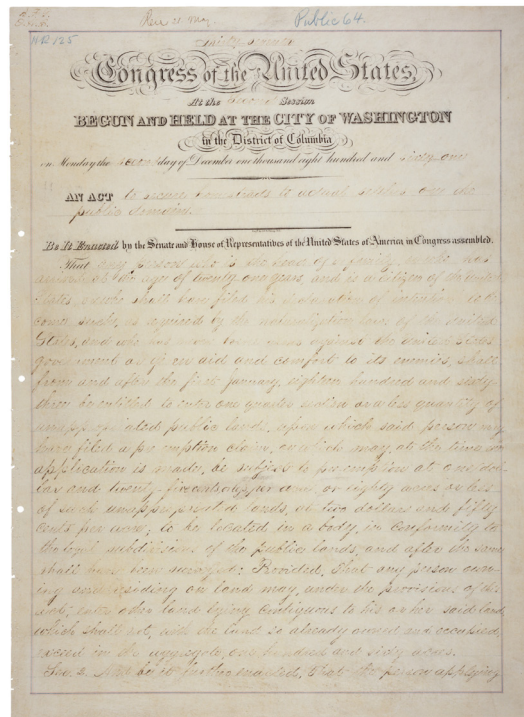 Public 64.
HR 125
Thirty-seventh
Congress of the United States,
At the second Session
BEGUN AND HELD AT THE CITY OF WASHINGTON
in the District of Columbia
on Monday the second day of December one thousand eight hundred and sixty-one
AN ACT to secure homesteads to actual settlers on the
public domain.
Be It Enacted by the Senate and House of Representatives of the United States of America in Congress assembled,
That any person who is the head of a family, or who has
arrived at the age of twenty one years, and is a citizen of the United
States, or who shall have filed his declaration of intention to be-
come such, as required by the naturalization laws of the United
States, and who has never borne arms against the United States
government or given aid and comfort to its enemies, shall
from and after the first January, eighteen hundred and sixty
three be entitled to enter one quarter section or a less quantity of
unappropriated public lands, upon which said person may
have filed a preemption claim, or which may, at the time
application is made, be subject to preemption at one dol-
lar and twenty-five cents, or less, per acre, or eighty acres or less
of such unappropriated lands, at two dollars and fifty
cents per acre, to be located in a body, in conformity to
the legal subdivisions of the public lands, and after the same
shall have been surveyed: Provided, That any person own-
ing and residing on land may, under the provisions of this
act, enter other land lying contiguous to his or her said land
which shall not, with the land so already owned and occupied,
exceed in the aggregate one hundred and sixty acres.
Sec. 2. And be it further enacted, That the person applying